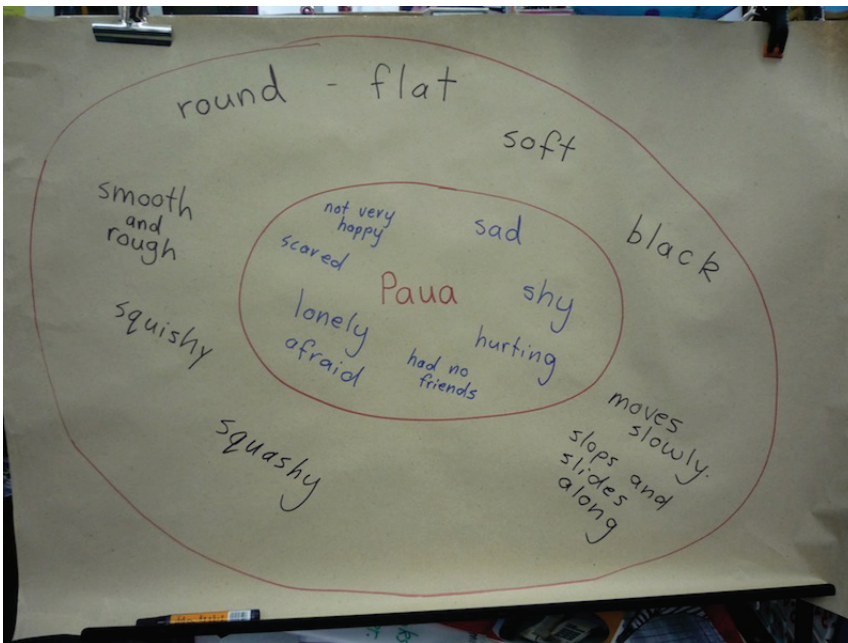 round - flat
soft
smooth
and
rough
black
squishy
squashy
moves
slowly.
slops and
slides
along
not very
happy
sad
scared
Paua
shy
lonely
afraid
hurting
had no
friends